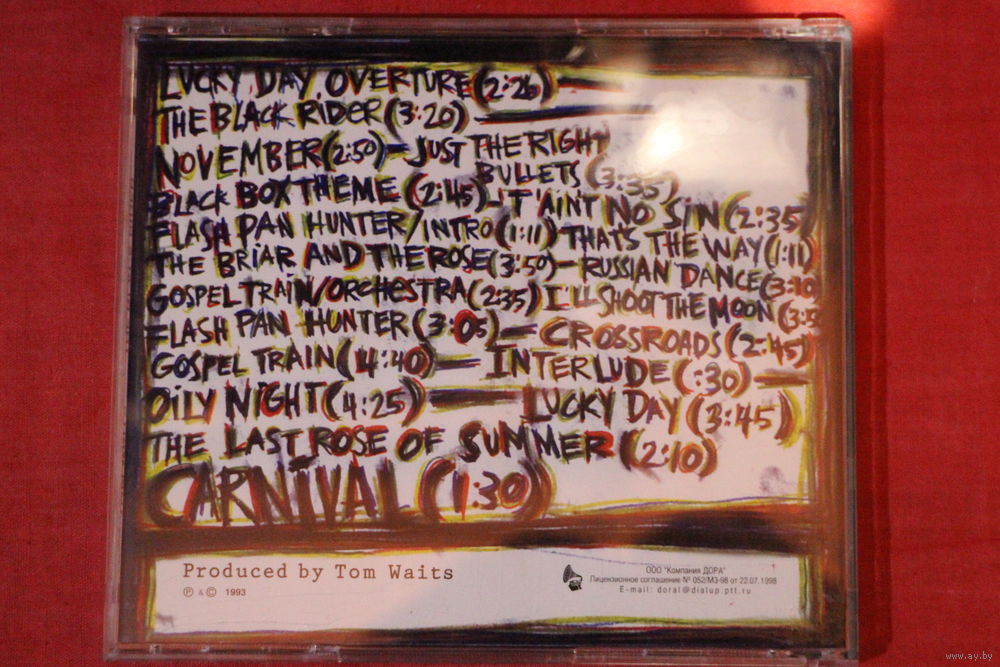 LUCKY DAY OVERTURE (2:26)
THE BLACK RIDER (3:20)
NOVEMBER (2:50) - JUST THE RIGHT
BULLETS (3:35)
BLACK BOX THEME (2:45) - 'T'AINT NO SIN (2:35)
FLASH PAN HUNTER/INTRO (1:11) - THAT'S THE WAY (1:11)
THE BRIAR AND THE ROSE (3:50) - RUSSIAN DANCE (3:10
GOSPEL TRAIN/ORCHESTRA (2:35) I'LL SHOOT THE MOON (3:5
FLASH PAN HUNTER (3:05) - CROSSROADS (2:45)
GOSPEL TRAIN (4:40) - INTERLUDE (:30) -
OILY NIGHT (4:25) - LUCKY DAY (3:45)
THE LAST ROSE OF SUMMER (2:10)
CARNIVAL (1:30)
Produced by Tom Waits
℗ & © 1993
ООО "Компания ДОРА"
Лицензионное соглашение № 052/МЗ-98 от 22.07.1998
E-mail: doral@dialup.ptt.ru
www.ay.by